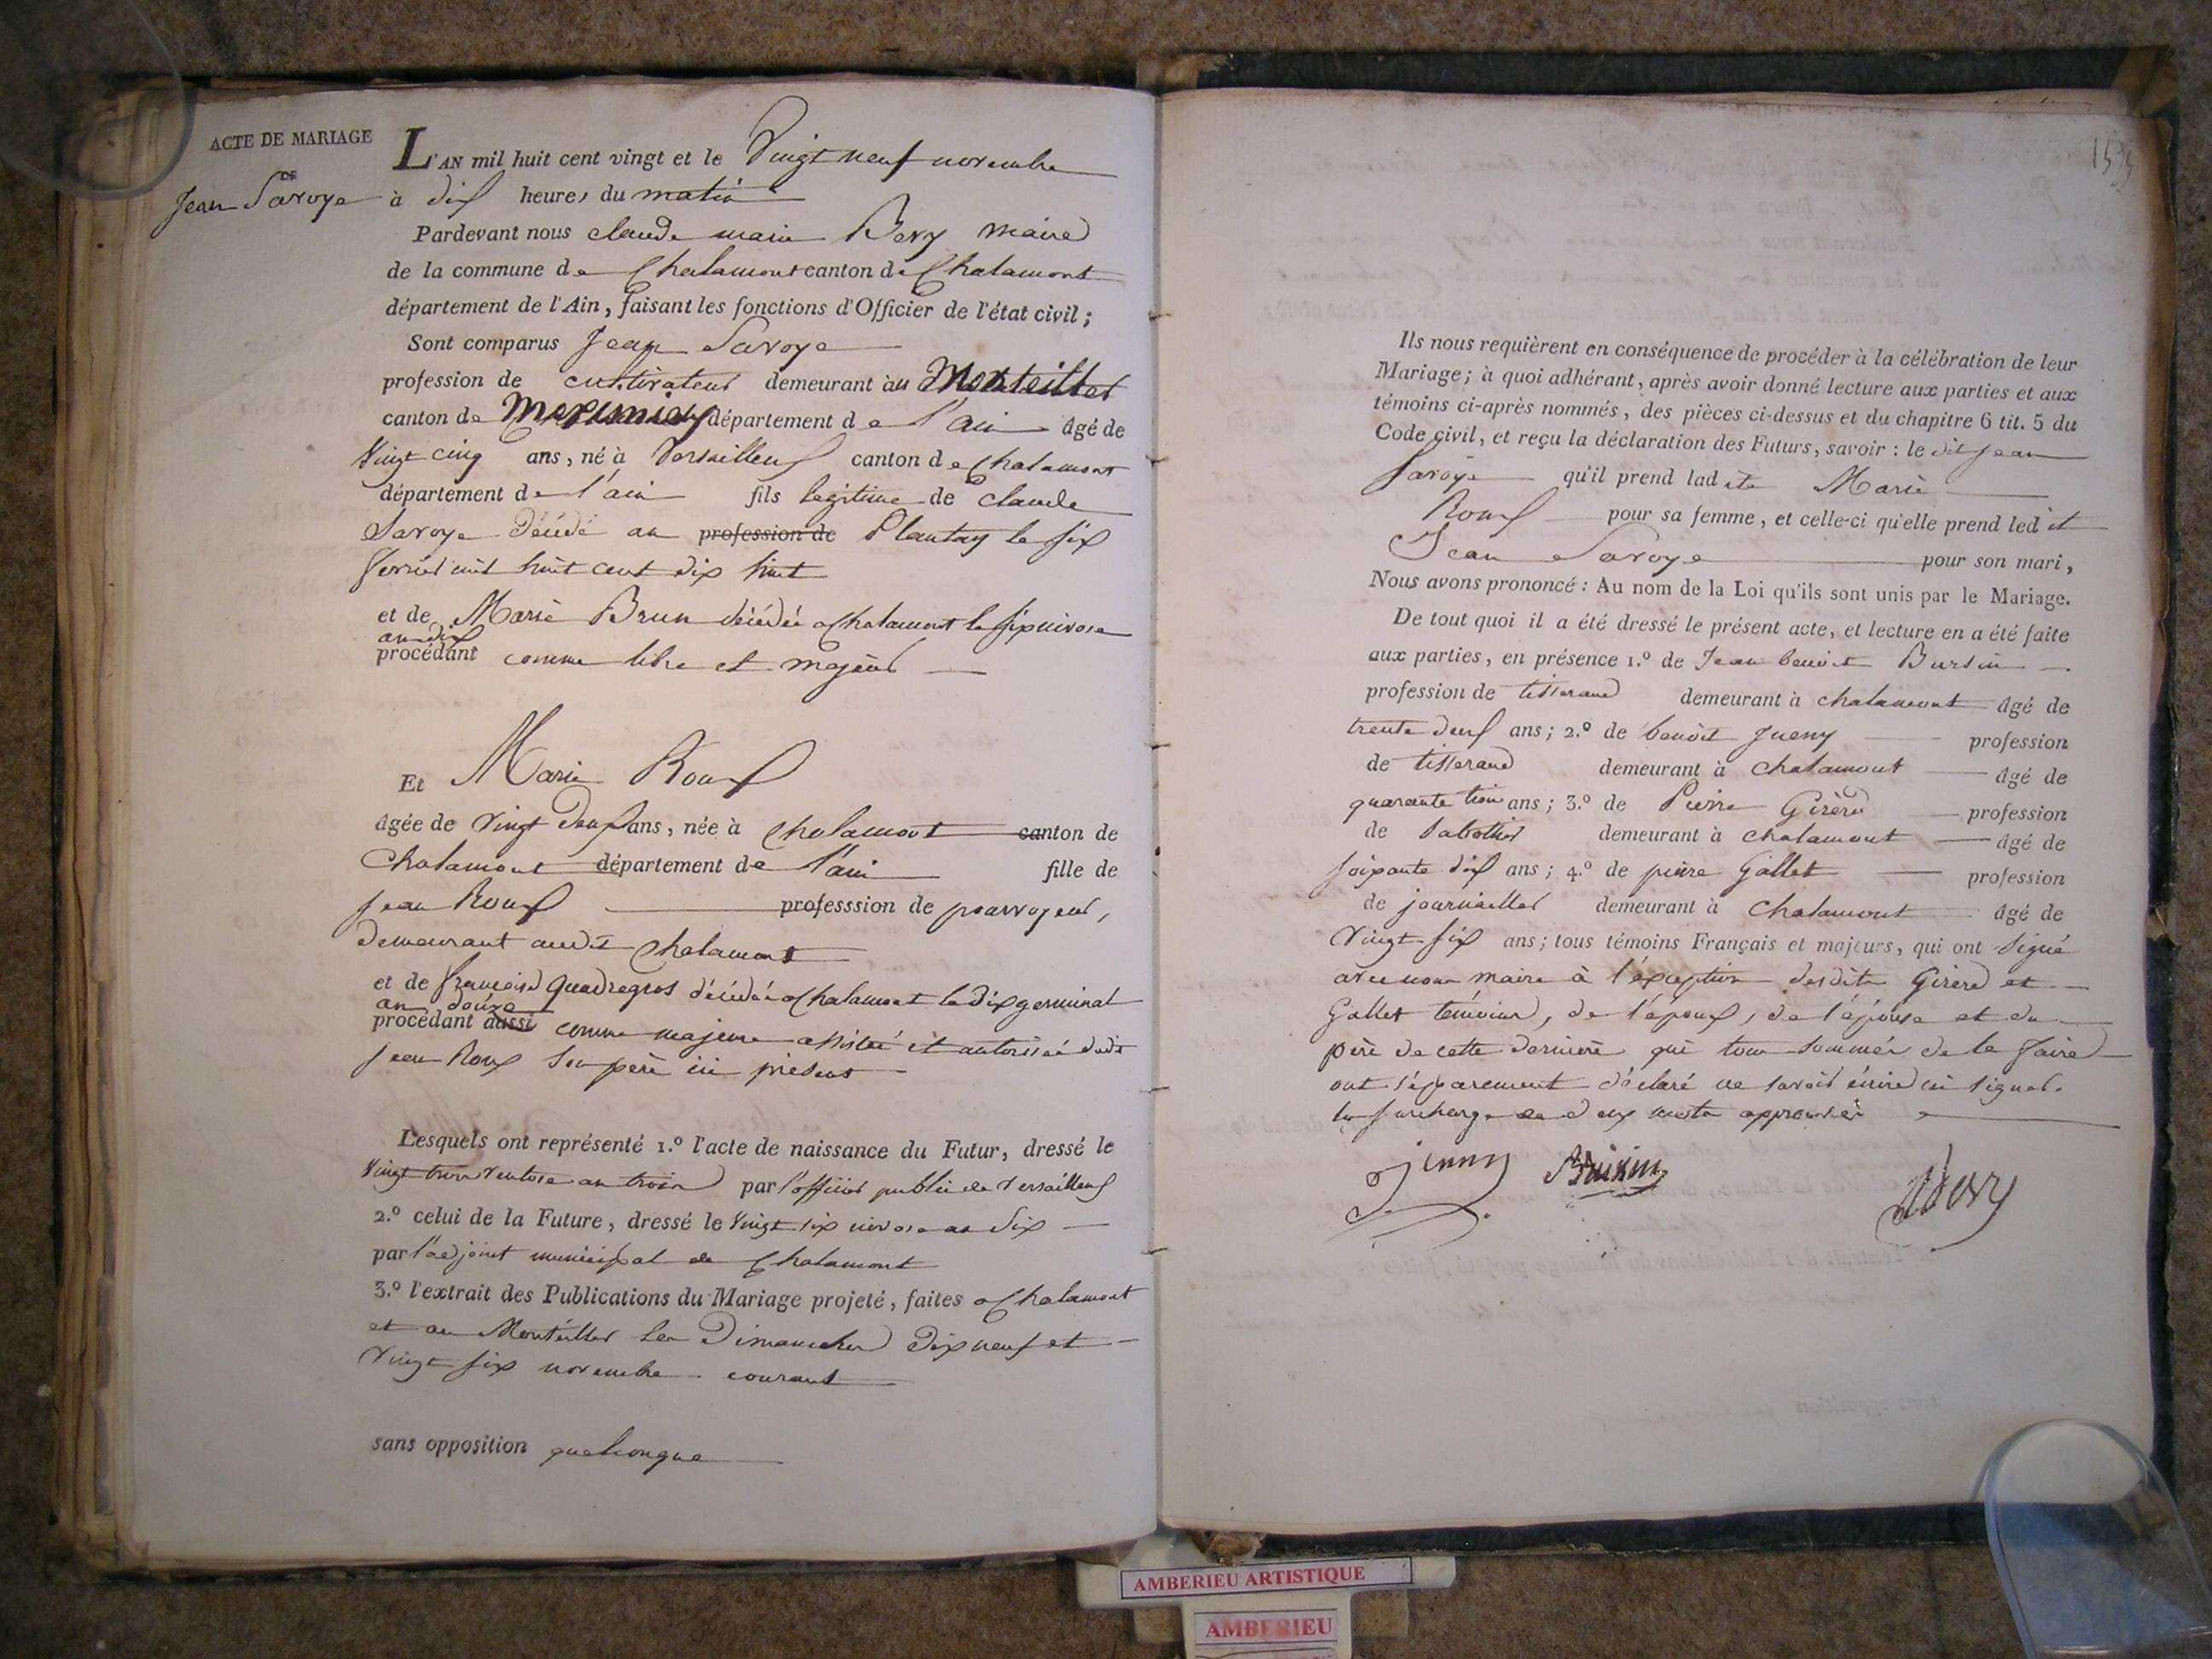 ACTE DE MARIAGE
DE
Jean Savoye
L'AN mil huit cent vingt et le Vingt neuf novembre
à dix heures du matin
Pardevant nous claude marie Bevy maire
de la commune de Chalamont canton de Chalamont
département de l'Ain, faisant les fonctions d'Officier de l'état civil;
Sont comparus Jean Savoye
profession de cultivateur demeurant au Monteillier
canton de Meximieux département de l'ain âgé de
Vingt cinq ans, né à Versailleux canton de Chalamont
département de l'ain fils légitime de claude
Savoye décédé au profession de Plantay le six
fevrier mil huit cent dix huit
et de Marie Brun décédée a Chalamont le six nivose
an dix
procédant comme libre et majeur
Et Marie Roux
âgée de Vingt deux ans, née à Chalamont canton de
Chalamont département de l'ain fille de
Jean Roux professsion de pourvoyeur,
demeurant audit Chalamont
et de françoise Quadregros décédée a Chalamont le dix germinal
an douze
procédant aussi comme majeure assistée et autorisée dudit
Jean Roux son père ici présent
Lesquels ont représenté 1.º l'acte de naissance du Futur, dressé le
Vingt trois Ventose an trois par l'officier public de Versailleux
2.º celui de la Future, dressé le Vingt six nivose an Six
par l'adjoint municipal de Chalamont
3.º l'extrait des Publications du Mariage projeté, faites a Chalamont
et au Montéillier les Dimanches Dix neuf et
Vingt six novembre courant
sans opposition quelconque
Ils nous requièrent en conséquence de procéder à la célébration de leur
Mariage; à quoi adhérant, après avoir donné lecture aux parties et aux
témoins ci-après nommés, des pièces ci-dessus et du chapitre 6 tit. 5 du
Code civil, et reçu la déclaration des Futurs, savoir: le dit Jean
Savoye qu'il prend ladite Marie
Roux pour sa femme, et celle-ci qu'elle prend ledit
Jean Savoye pour son mari,
Nous avons prononcé: Au nom de la Loi qu'ils sont unis par le Mariage.
De tout quoi il a été dressé le présent acte, et lecture en a été faite
aux parties, en présence 1.º de Jean benoit Bursin
profession de tisserand demeurant à chalamont âgé de
trente deux ans; 2.º de benoit Jueny profession
de tisserand demeurant à chalamont âgé de
quarante trois ans; 3.º de Pierre Girère profession
de Sabotier demeurant à chalamont âgé de
soixante dix ans; 4.º de pierre Gallet profession
de journaillier demeurant à chalamont âgé de
Vingt-six ans; tous témoins Français et majeurs, qui ont signé
avec nous maire à l'exception desdits Girère et
Gallet témoins, de l'époux, de l'épouse et du
père de cette dernière qui tous sommés de le faire
ont séparément déclaré ne savoir écrire ni signer.
la surcharge de deux mots approuvée
Bevy